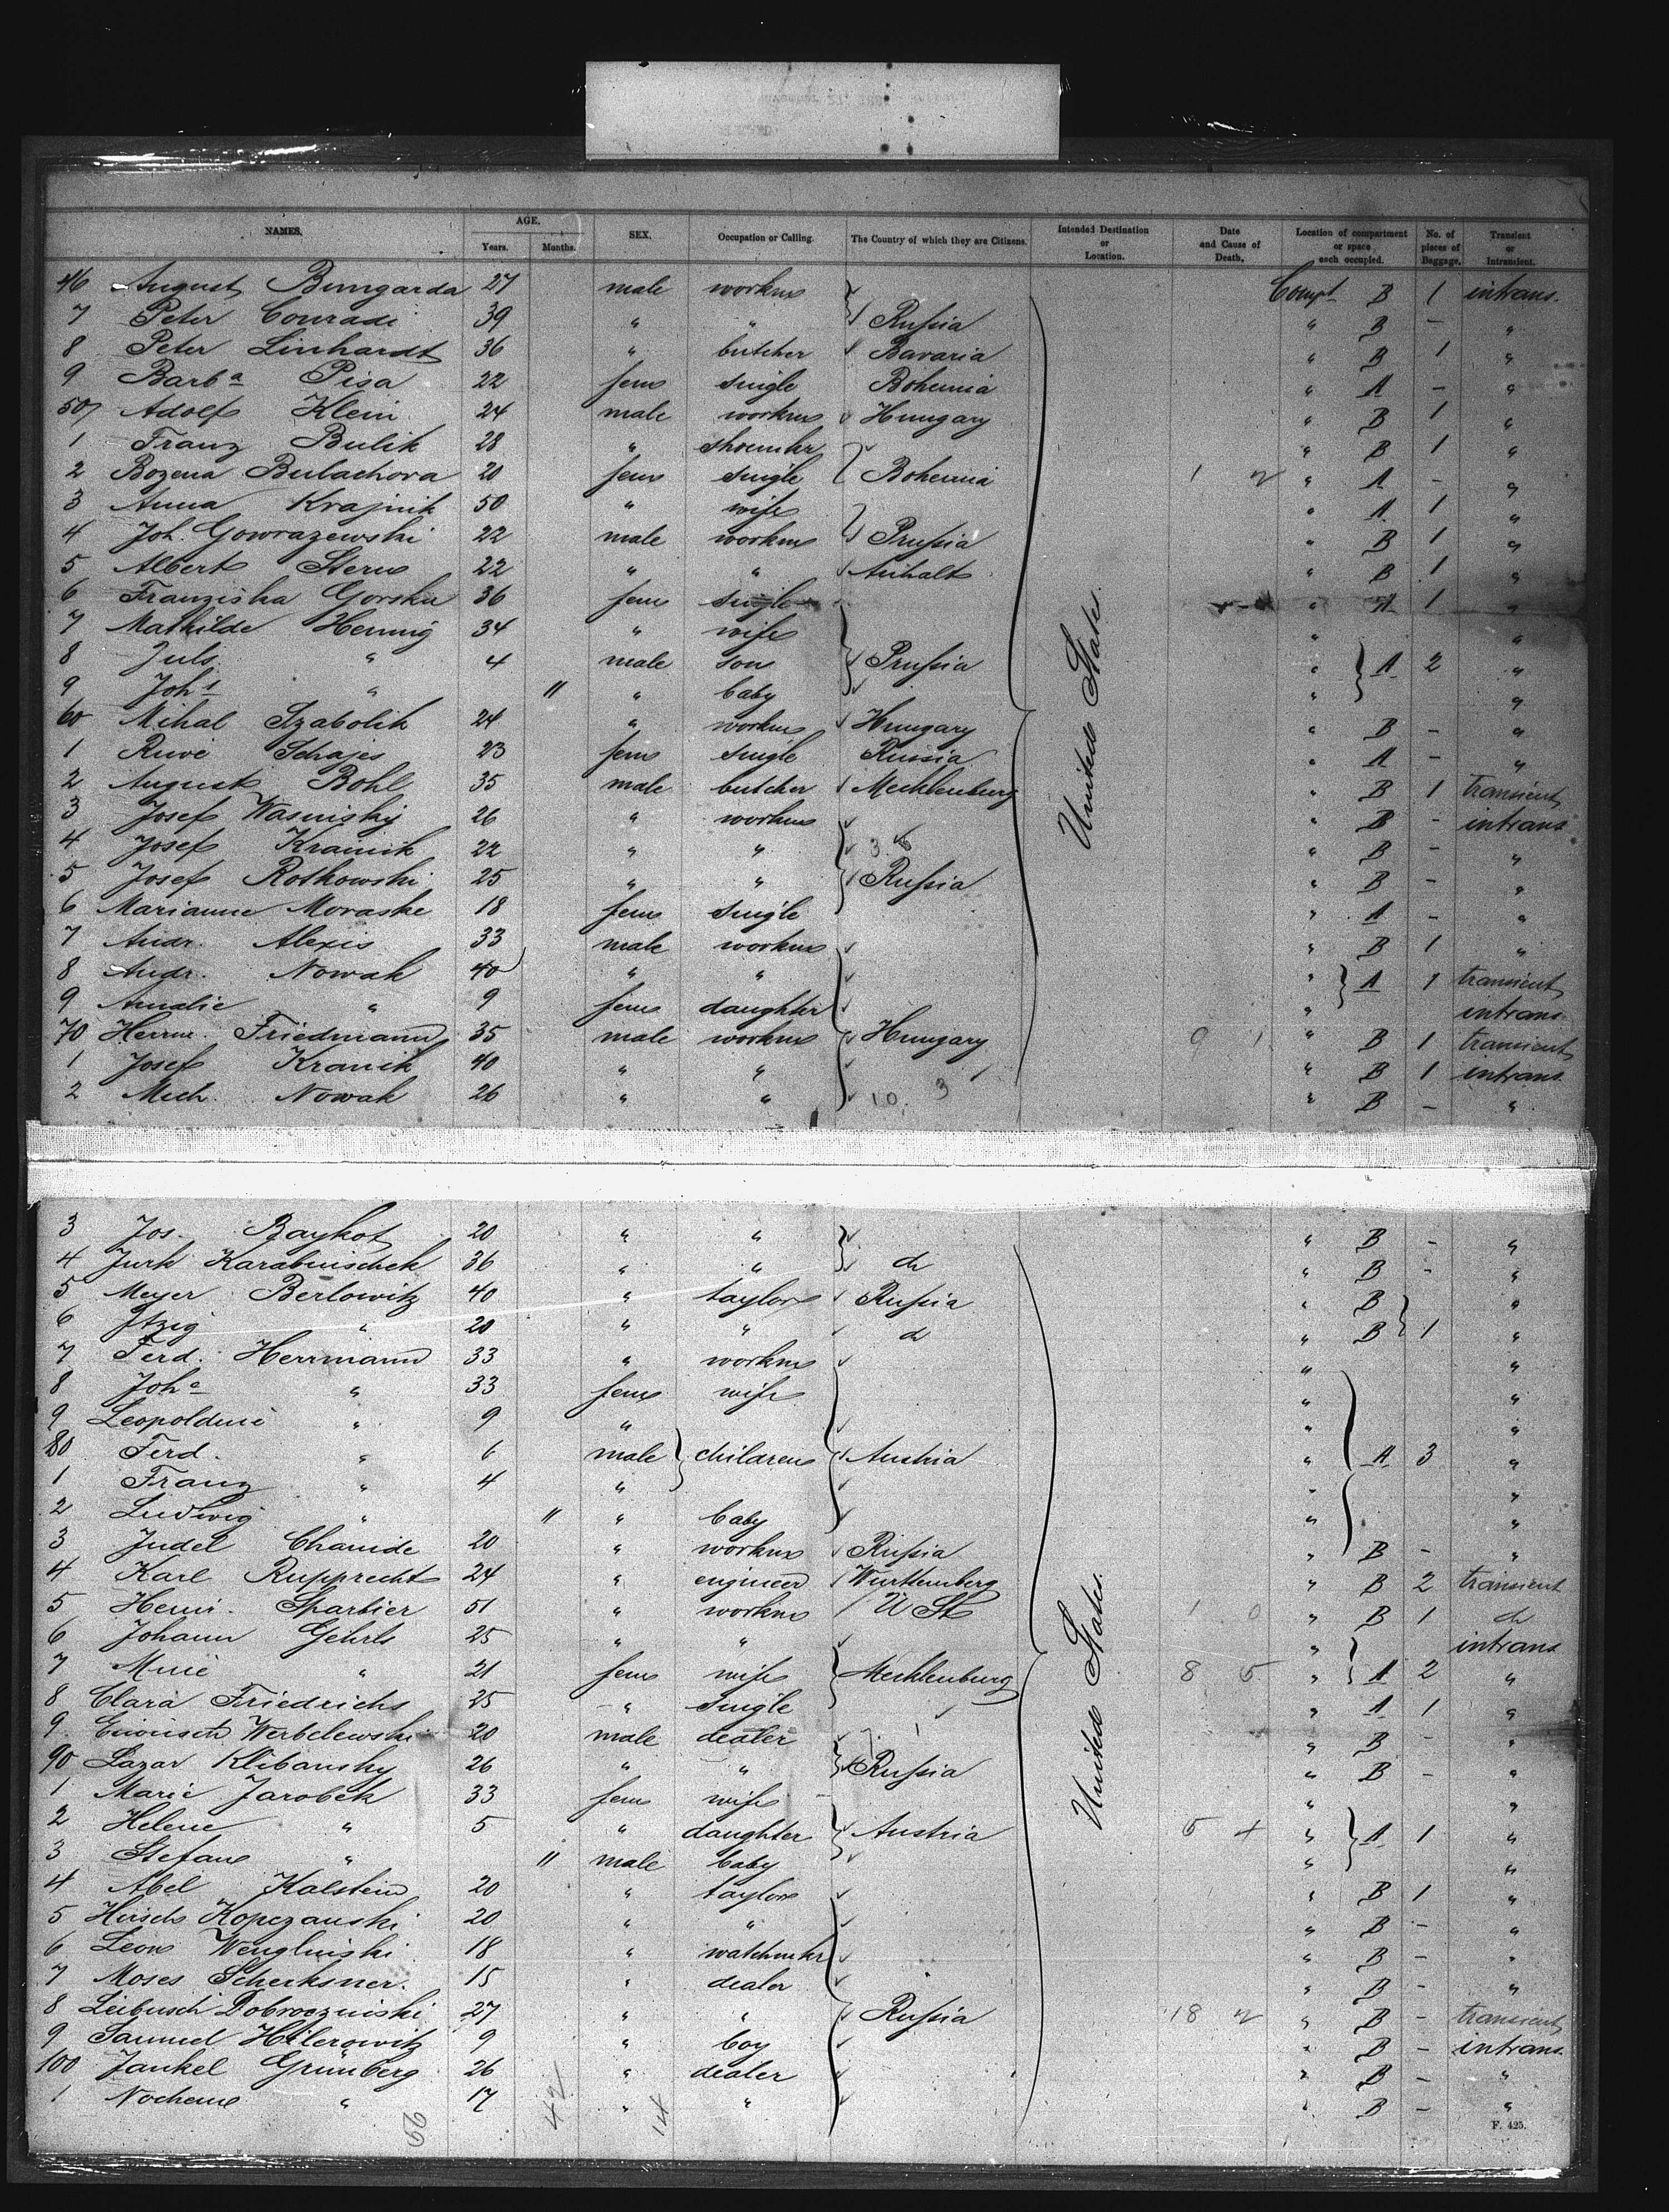 NAMES. AGE. SEX. Occupation or Calling. The Country of which they are Citizens. Intended Destination or Location. Date and Cause of Death. Location of compartment or space each occupied. No. of pieces of Baggage. Transient or Intransient.
Years. Months.
46 August Bungarda 27 male workm Compt B 1 intrans.
7 Peter Conradi 39 " " Russia " B - "
8 Peter Linhardt 36 " butcher Bavaria " B 1 "
9 Barba Pisa 22 fem single Bohemia " A - "
50 Adolf Klein 24 male workm Hungary " B 1 "
1 Franz Bulik 28 " shoemkr " B 1 "
2 Bozena Bulachova 20 fem single Bohemia " A - "
3 Anna Krajnik 50 " wife " A 1 "
4 Joh. Gowrazewski 22 male workm Prussia " B 1 "
5 Albert Stern 22 " " Anhalt " B 1 "
6 Franziska Gorska 36 fem single " A 1 "
7 Mathilde Hennig 34 " wife " "
8 Juls " 4 male son Prussia " A 2 "
9 Johs " 11 " baby " "
60 Mihal Szabolik 24 " workm Hungary " B - "
1 Ruwe Schajes 23 fem single Russia " A - "
2 August Bohl 35 male butcher Mecklenburg " B 1 transient
3 Josef Wasnisky 26 " workm " B - intrans
4 Josef Kramik 22 " " " B - "
5 Josef Rotkowski 25 " " Russia " B - "
6 Marianne Moraske 18 fem single " A - "
7 Andr. Alexis 33 male workm " B 1 "
8 Andr. Nowak 40 " " " A 1 transient
9 Amalie " 9 fem daughter " intrans
70 Herm. Friedmann 35 male workm Hungary " B 1 transient
1 Josef Kranik 40 " " " B 1 intrans.
2 Mich. Nowak 26 " " " B - "
United States.
3 Jos. Baykot 20 " " " B - "
4 Jurk Karabinschek 36 " " do " B - "
5 Meyer Berlowitz 40 " taylor Russia " B "
6 Itzig " 20 " " do " B 1 "
7 Ferd. Herrmann 33 " workm " "
8 Joha " 33 fem wife " "
9 Leopoldine " 9 " " "
80 Ferd. " 6 male children Austria " A 3 "
1 Franz " 4 " " "
2 Ludwig " 11 " baby " "
3 Judel Chanide 20 " workm Russia " B - "
4 Karl Rupprecht 24 " engineer Wurttemberg " B 2 transient
5 Henri. Sparbier 51 " workm U St " B 1 do
6 Johann Gehrls 25 " " " intrans
7 Mine " 21 fem wife Mecklenburg " A 2 "
8 Clara Friedrichs 25 " single " A 1 "
9 Werbelewski 20 male dealer " B - "
90 Lazar Klibansky 26 " " Russia " B - "
1 Marie Jarobek 33 fem wife " "
2 Helene " 5 " daughter Austria " A 1 "
3 Stefan " 11 male baby " "
4 Abel Kalstein 20 " taylor " B 1 "
5 Hirsch Kopczanski 20 " " " B - "
6 Leon Wenglinski 18 " watchmkr " B - "
7 Moses Scherksner. 15 " dealer " B - "
8 Leibusch Dobroczinski 27 " " Russia " B - transient
9 Samuel Hilerowitz 9 " boy " B - intrans.
100 Jankel Grünberg 26 " dealer " B - "
1 Nochem " 17 " " " B - "
United States.
F. 425.